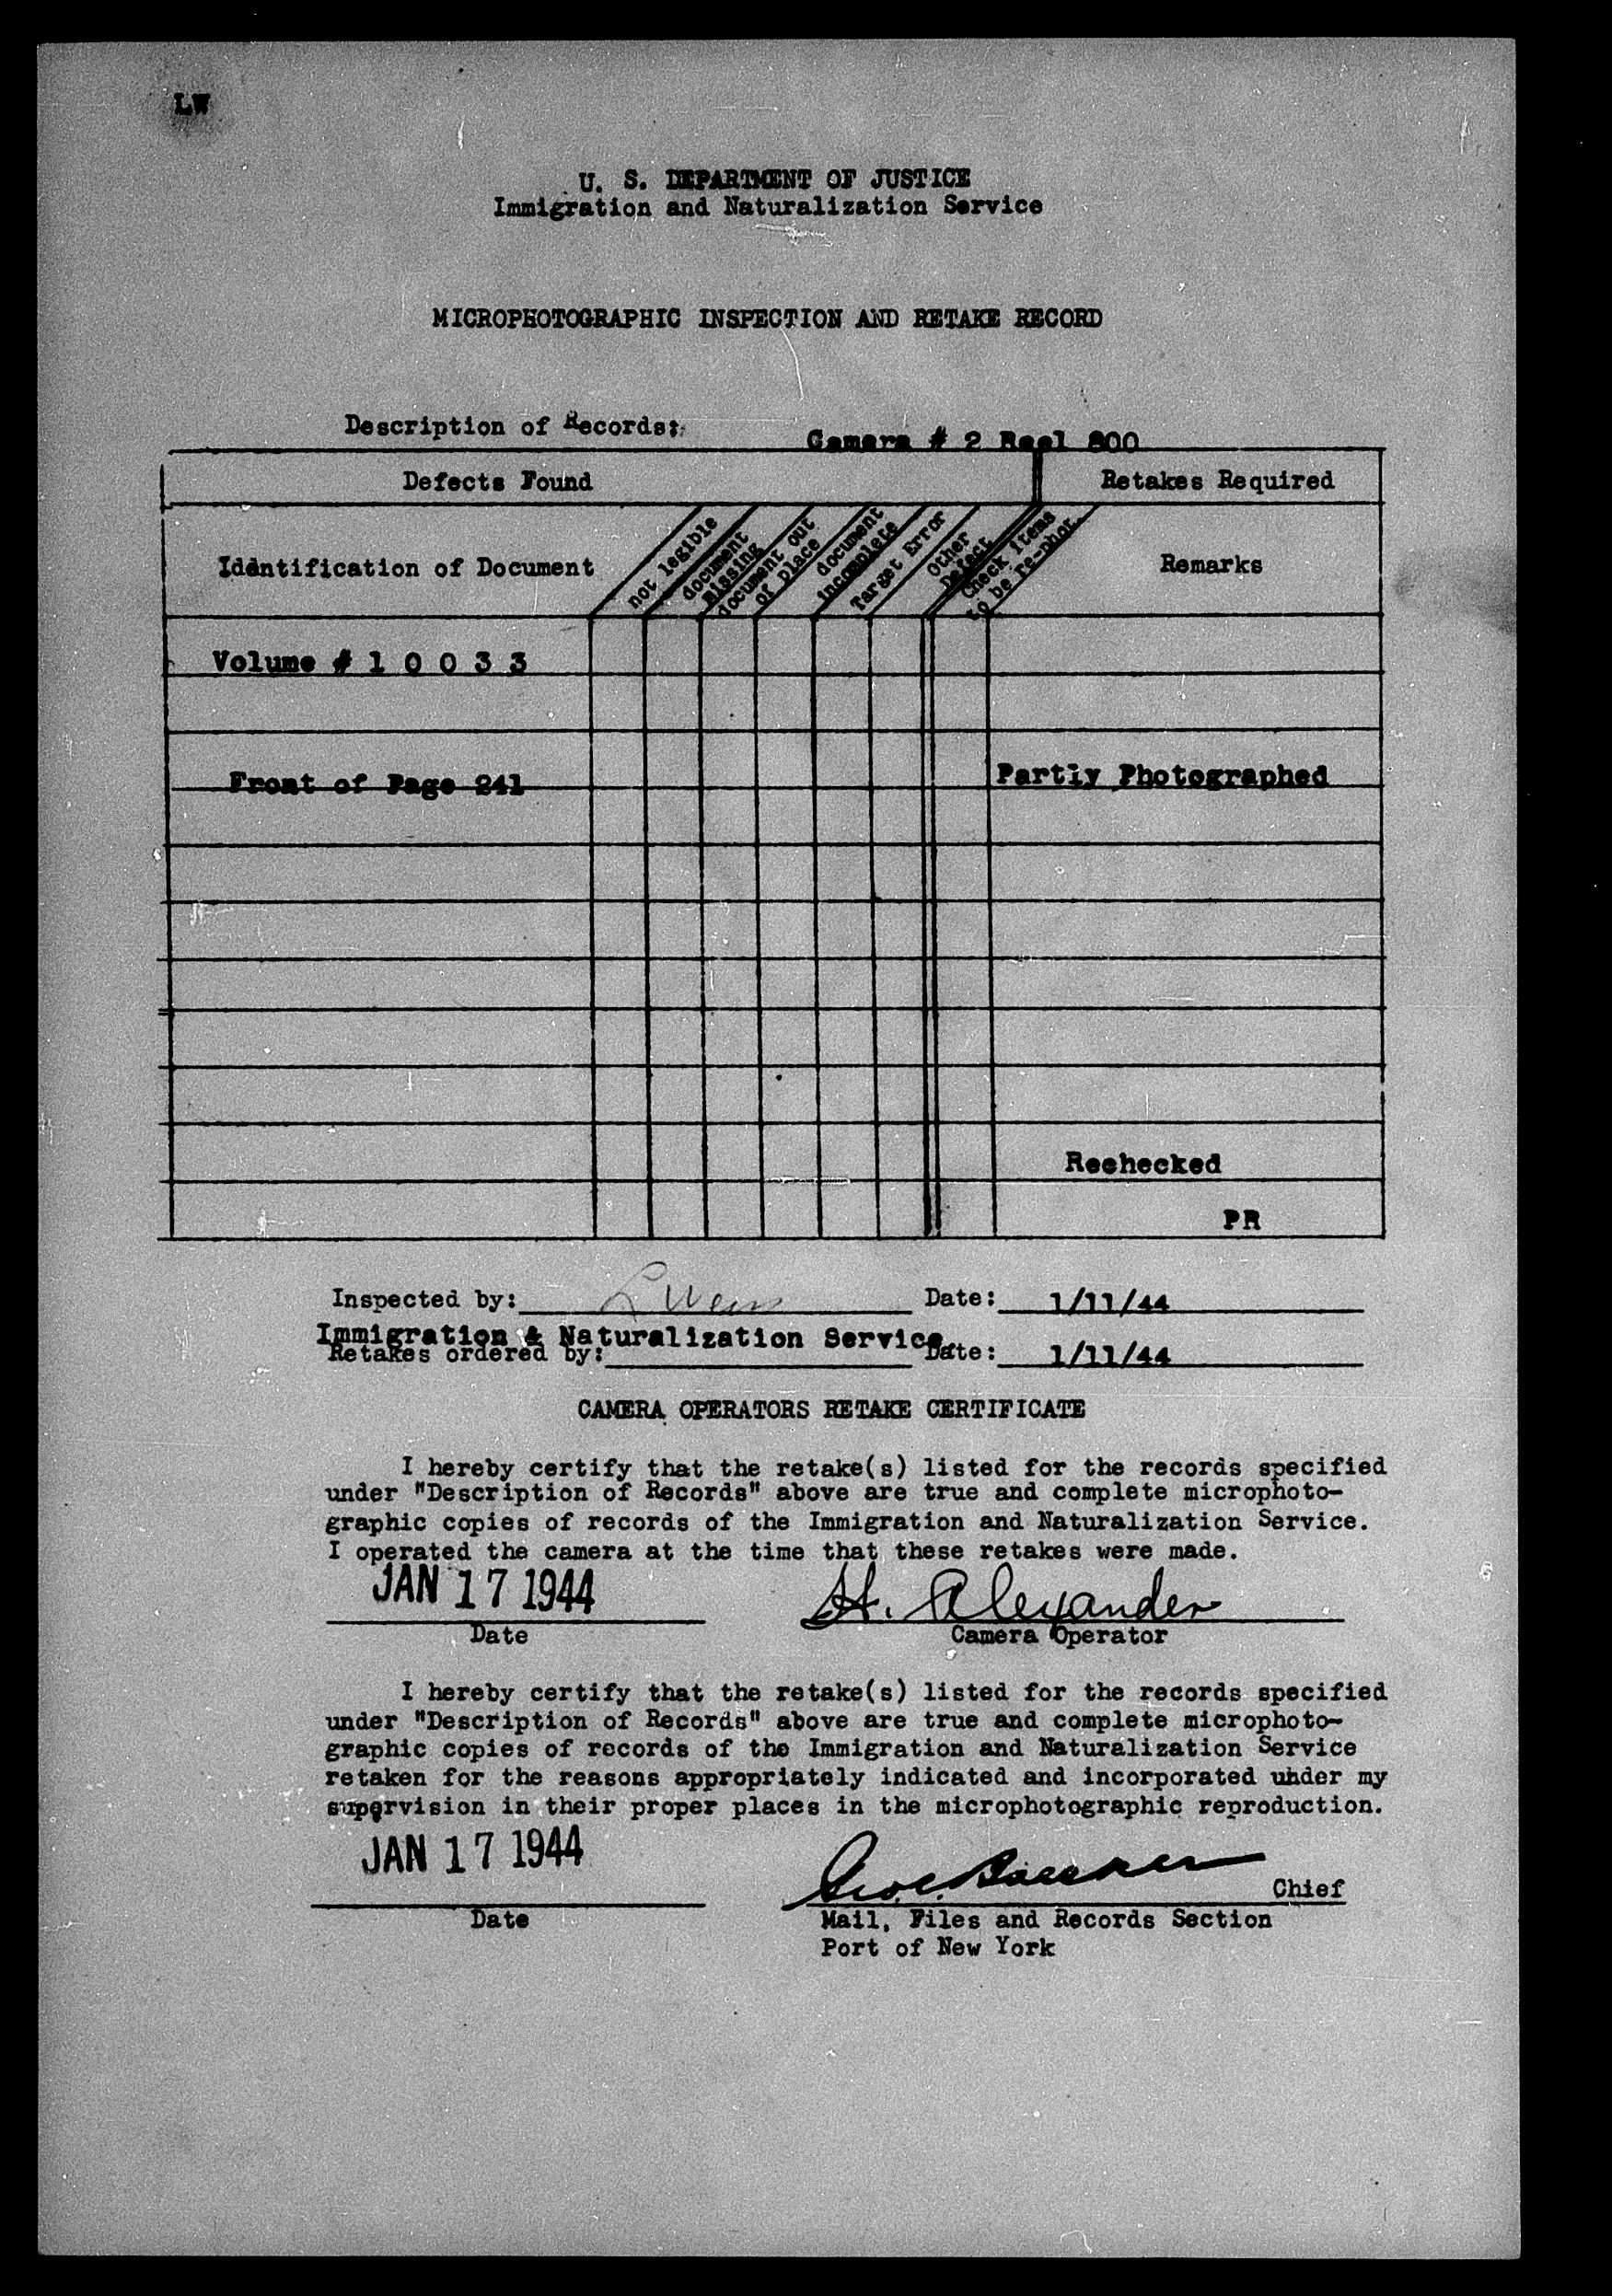 LW
U. S. DEPARTMENT OF JUSTICE
Immigration and Naturalization Service
MICROPHOTOGRAPHIC INSPECTION AND RETAKE RECORD
Description of Records: Camera # 2 Reel 800
Defects Found Retakes Required
Identification of Document
not legible
document
missing
document out
of place
document
incomplete
Target Error
Other
Defect
Check items
to be re-phot.
Remarks
Volume # 1 0 0 3 3
Front of Page 241 Partly Photographed
Rechecked
PR
Inspected by: L Weis Date: 1/11/44
Immigration & Naturalization Service
Retakes ordered by: Date: 1/11/44
CAMERA OPERATORS RETAKE CERTIFICATE
I hereby certify that the retake(s) listed for the records specified
under "Description of Records" above are true and complete microphoto-
graphic copies of records of the Immigration and Naturalization Service.
I operated the camera at the time that these retakes were made.
JAN 17 1944 H. Alexander
Date Camera Operator
I hereby certify that the retake(s) listed for the records specified
under "Description of Records" above are true and complete microphoto-
graphic copies of records of the Immigration and Naturalization Service
retaken for the reasons appropriately indicated and incorporated under my
supervision in their proper places in the microphotographic reproduction.
JAN 17 1944
Chief
Date Mail, Files and Records Section
Port of New York